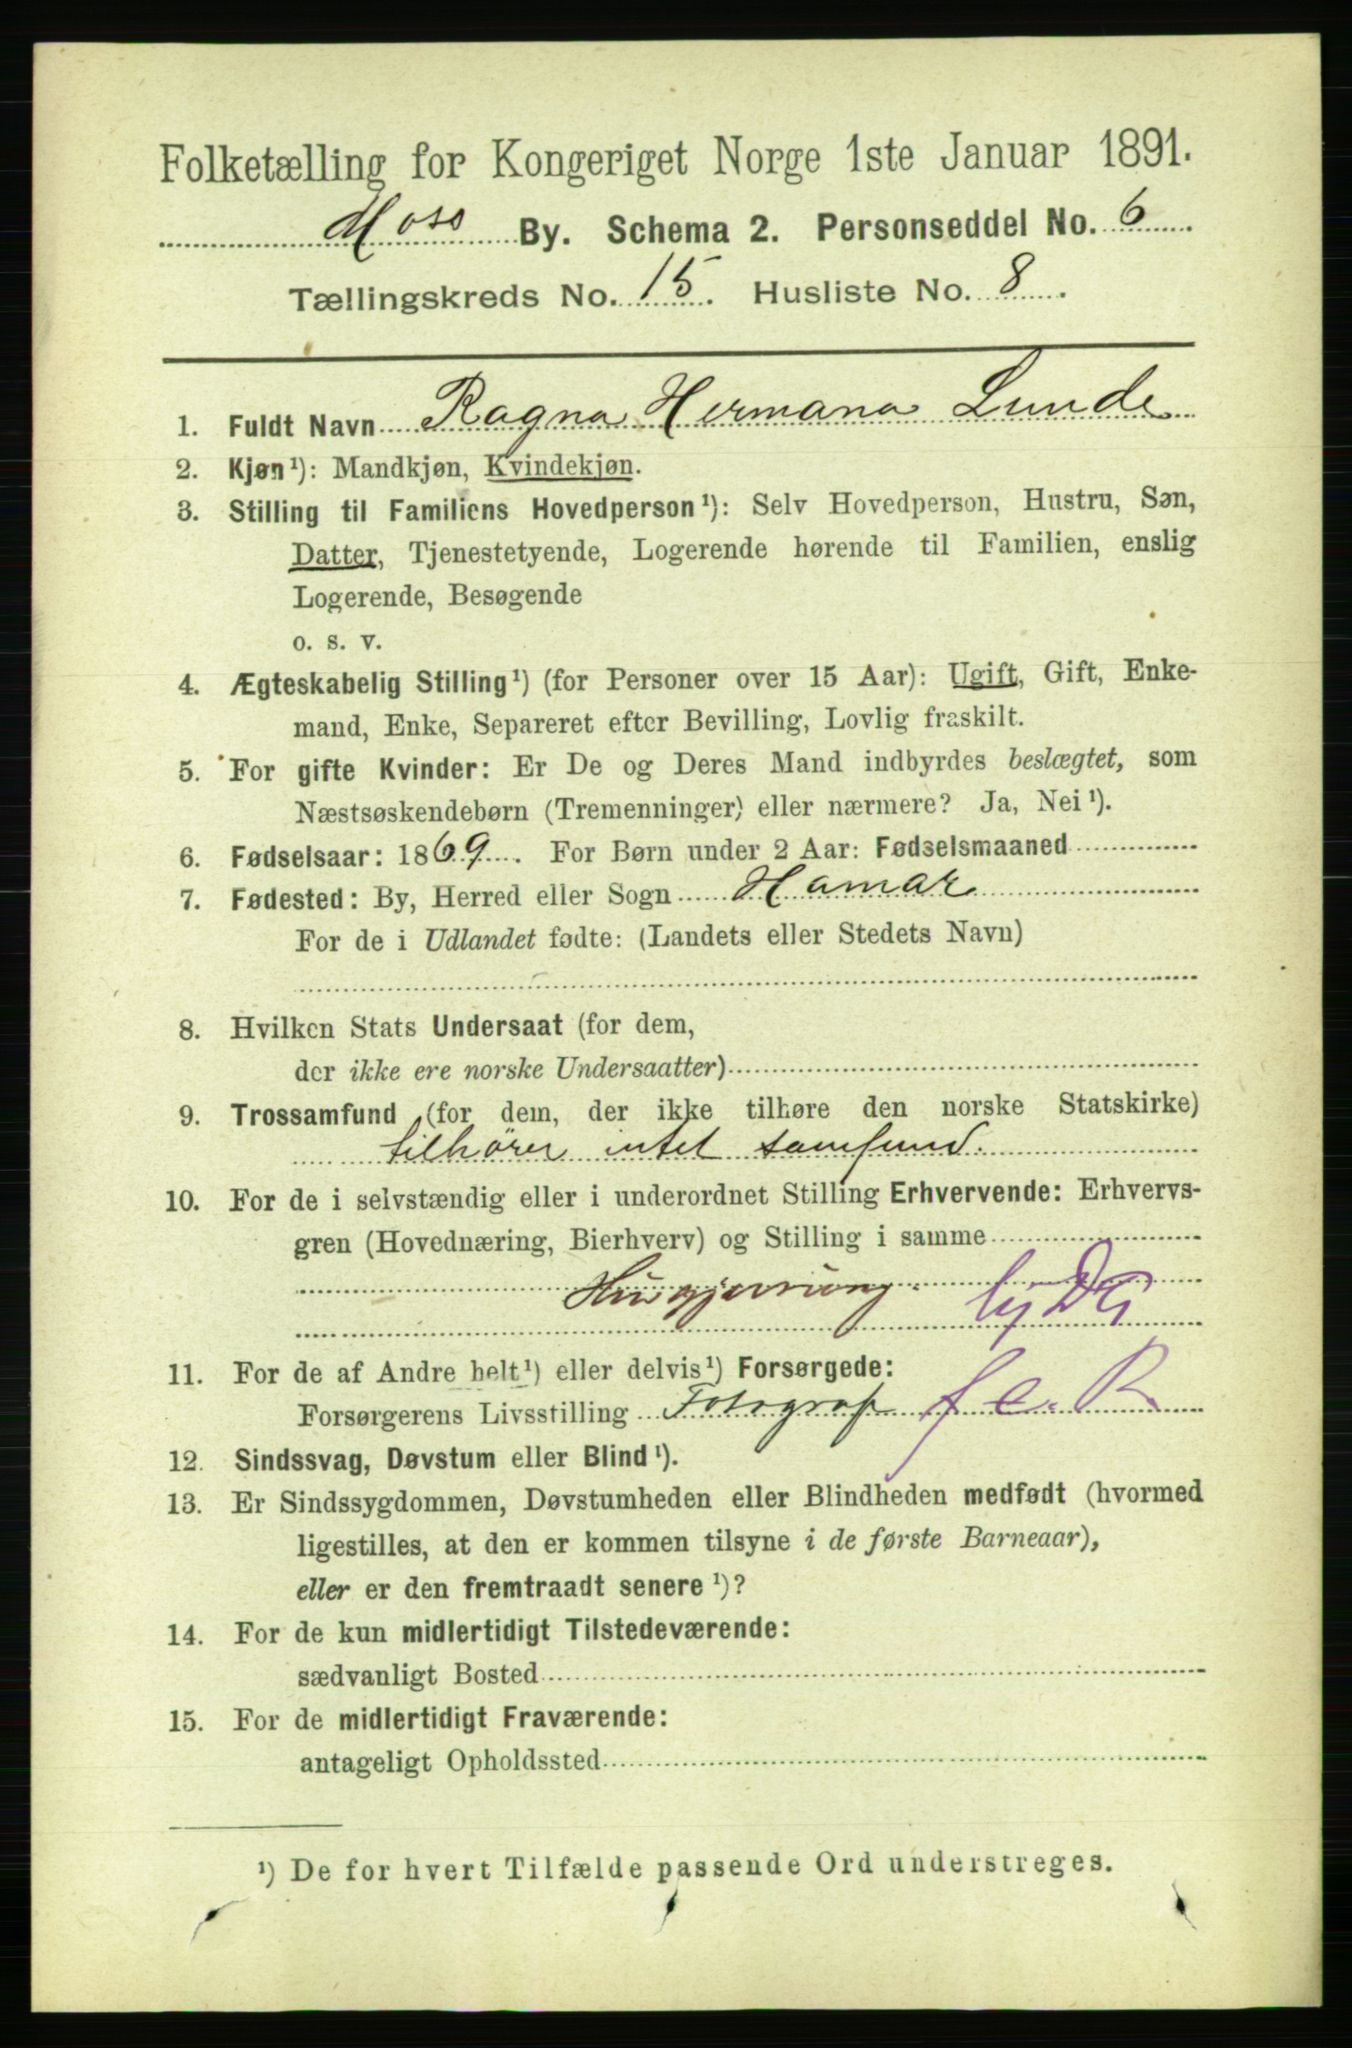 Folketælling for Kongeriget Norge 1ste Januar 1891.
Moss By. Schema 2. Personseddel No. 6
Tællingskreds No. 15. Husliste No. 8.
1. Fuldt Navn Ragna Hermana Lunde
2. Kjøn¹): Mandkjøn, Kvindekjøn.
3. Stilling til Familiens Hovedperson¹): Selv Hovedperson, Hustru, Søn,
Datter, Tjenestetyende, Logerende hørende til Familien, enslig
Logerende, Besøgende
o. s. v.
4. Ægteskabelig Stilling¹) (for Personer over 15 Aar): Ugift, Gift, Enke-
mand, Enke, Separeret efter Bevilling, Lovlig fraskilt.
5. For gifte Kvinder: Er De og Deres Mand indbyrdes beslægtet, som
Næstsøskendebørn (Tremenninger) eller nærmere? Ja, Nei¹).
6. Fødselsaar: 1869. For Børn under 2 Aar: Fødselsmaaned
7. Fødested: By, Herred eller Sogn Hamar
For de i Udlandet fødte: (Landets eller Stedets Navn)
8. Hvilken Stats Undersaat (for dem,
der ikke ere norske Undersaatter)
9. Trossamfund (for dem, der ikke tilhøre den norske Statskirke)
tilhører intet samfund.
10. For de i selvstændig eller i underordnet Stilling Erhvervende: Erhvervs-
gren (Hovednæring, Bierhverv) og Stilling i samme
Husgjerning
11. For de af Andre helt¹) eller delvis¹) Forsørgede:
Forsørgerens Livsstilling Fotograf f c. R
12. Sindssvag, Døvstum eller Blind¹).
13. Er Sindssygdommen, Døvstumheden eller Blindheden medfødt (hvormed
ligestilles, at den er kommen tilsyne i de første Barneaar),
eller er den fremtraadt senere¹)?
14. For de kun midlertidigt Tilstedeværende:
sædvanligt Bosted
15. For de midlertidigt Fraværende:
antageligt Opholdssted
¹) De for hvert Tilfælde passende Ord understreges.